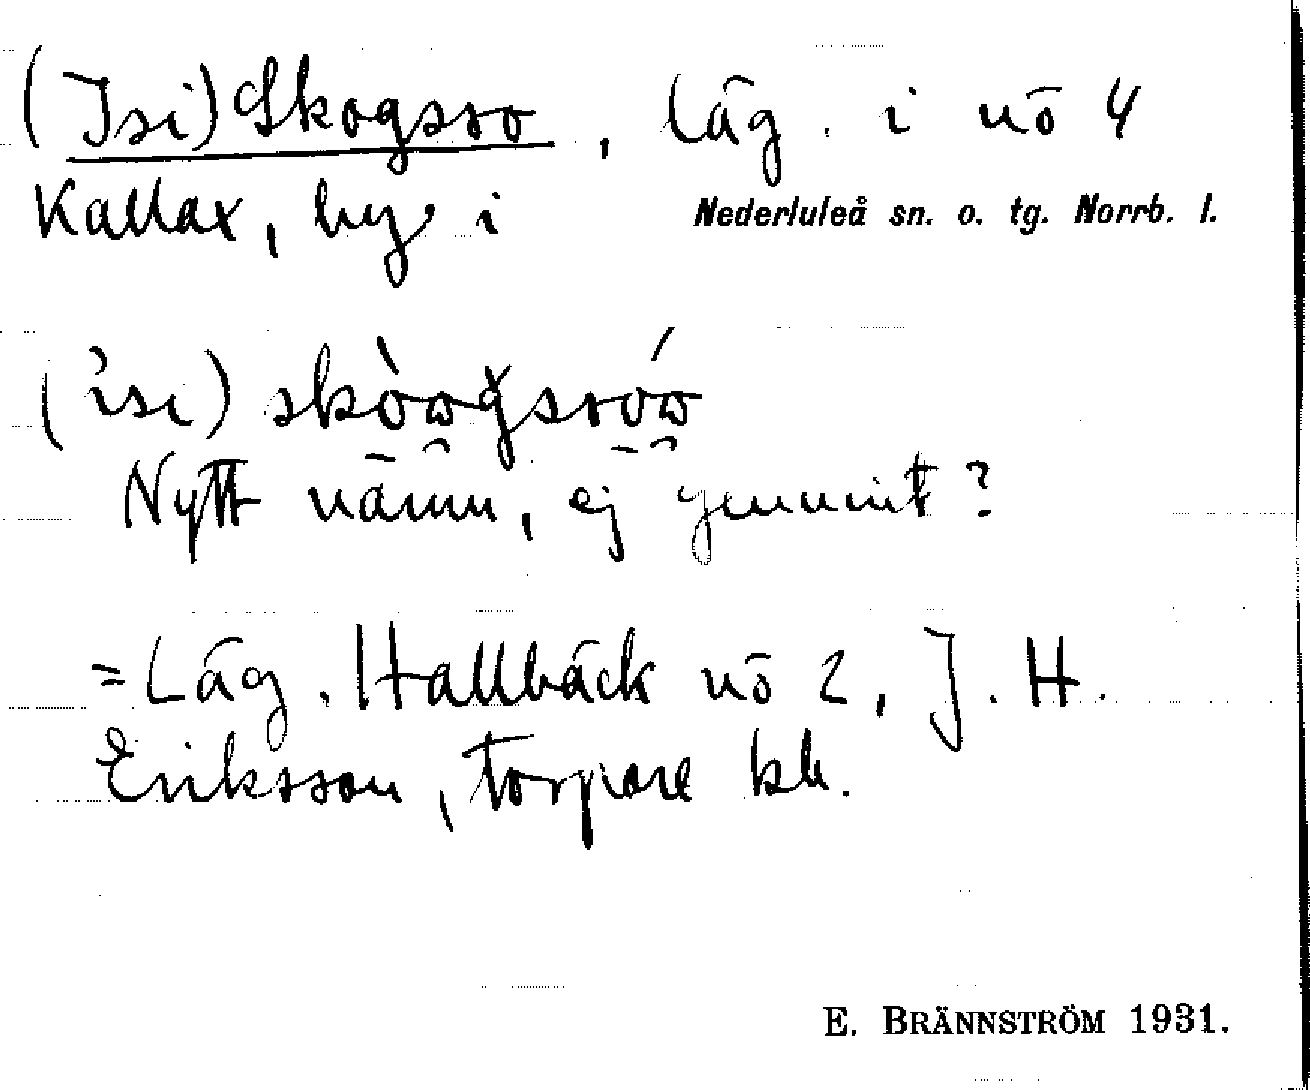 (Isi) Skogsro, läg. i nö 4
Kallax, by i Nederluleå sn. o. tg. Norrb. l.
(isi)
Nytt nämn, ej genuint?
= Läg. Hallbäck nö 2, J. H.
Eriksson, torpare kk.
E. BRÄNNSTRÖM 1931.